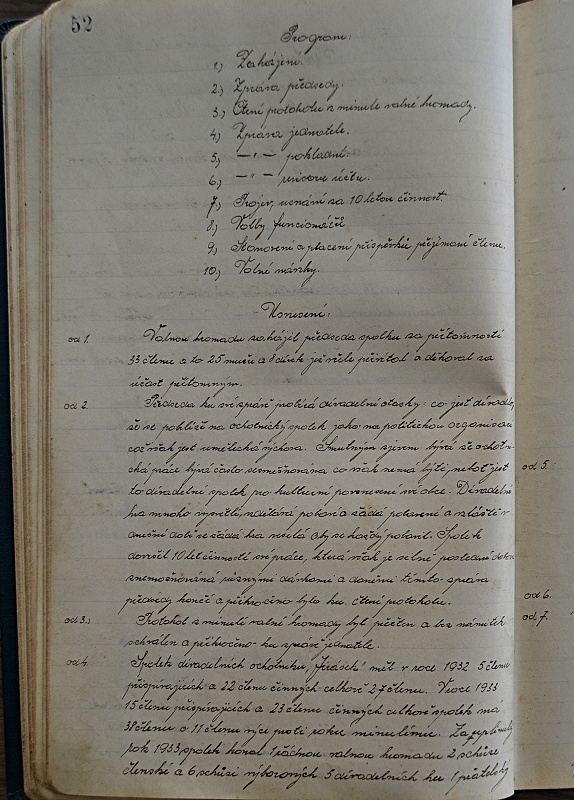 52
Program:
1.) Zahájení.
2.) Zpráva předsedy.
3.) Čtení protokolu z minulé valné hromady.
4.) Zpráva jednatele.
5.) —"— pokladní.
6.) —"— revisoru účtu.
7.) Projev, uznání za 10 letou činnost.
8.) Volby funcionářů
9.) Stanovení a placení příspěvků přijímání členu.
10.) Volné návrhy.
Usnesení:
od 1. Valnou hromadu zahájil předseda spolku za přítomnosti
33 členu a to 25 mužu a 8 dívek jež vřele přivítal a děkoval za
účast přítomným.
od 2. Předseda ku své správě probírá divadelní otázky: co jest divadlo,
že se pohlíží na ochotnický spolek jako na politickou organisaci
což však jest umělecká výchova. Smutným zjevem bývá že ochotni-
cká práce bývá často zesměšňována co však nemá býti, neboť jest
to divadelní spolek pro kulturní povznesení své obce. Divadelní
hra mnoho vysvětlí, vzdělává pobaví a žádá pobavení a zvláště v
dnešní době se žádá hra veselá aby se každý pobavil. Spolek
dovršil 10 let činnosti své práce, která však je silně poslední dobou
znemožňována různými dávkami a daněmi tímto zpráva
předsedy končí a přikročeno bylo ku čtení protokolu.
od 3.) Protokol z minulé valné hromady byl přečten a bez námitek
schválen a přikročeno ku zprávě jednatele.
od 4. Spolek divadelních ochotníku „Jirásek" měl v roce 1932 5 členu
přispívajících a 22 členu činných celkově 27 členu. V roce 1933
15 členu přispívajících a 23 členu činných celkově spolek má
38 členu o 11 členu více proti roku minulému. Za uplynulý
rok 1933, spolek konal 1 řádnou valnou hromadu 2 schůze
členské a 6 schůzí výborových 5 divadelních her 1 přátelský
od 5.
od 6.
od 7.